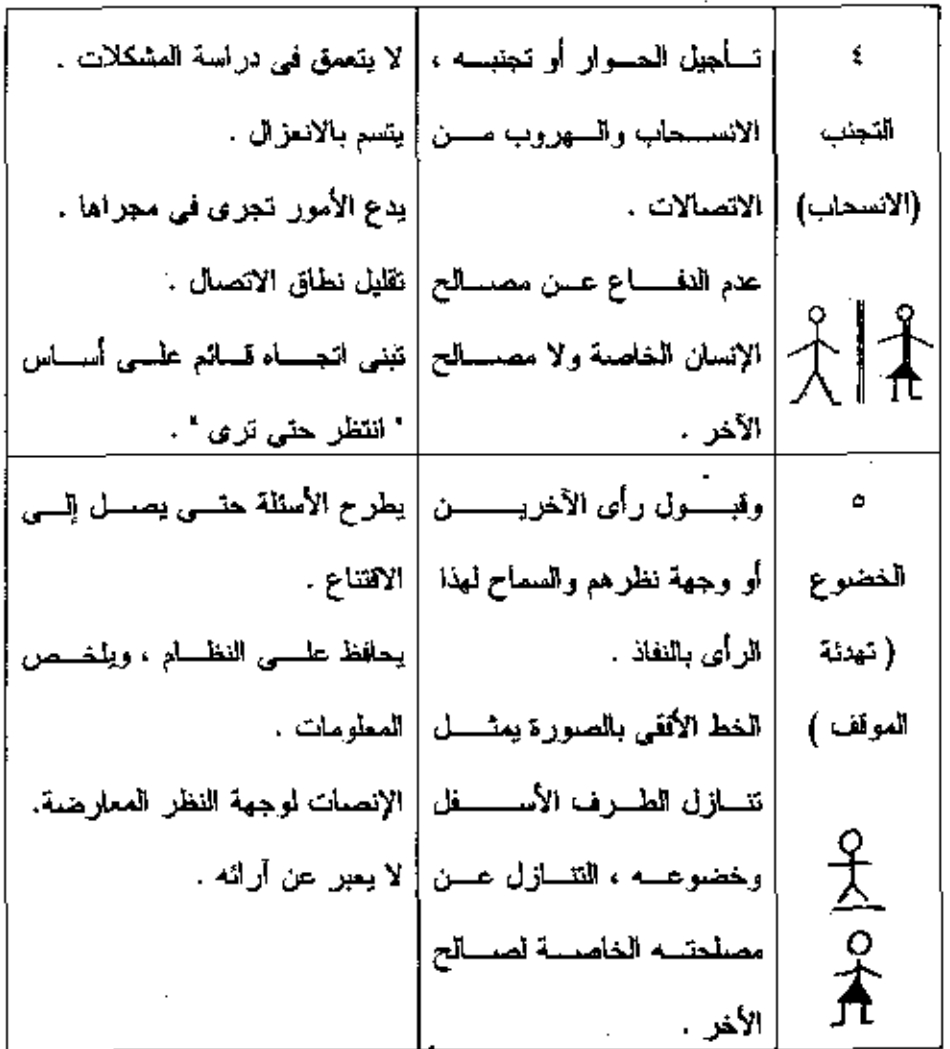 ٤
التجنب
(الانسحاب)
تأجيل الحوار أو تجنبه ،
الانسحاب والهروب من
الاتصالات .
عدم الدفاع عن مصالح
الإنسان الخاصة ولا مصالح
الآخر .
لا يتعمق فى دراسة المشكلات .
يتسم بالانعزال .
يدع الأمور تجرى فى مجراها .
تقليل نطاق الاتصال .
تبنى اتجاه قائم على أساس
" انتظر حتى ترى " .
٥
الخضوع
( تهدئة
الموقف )
وقبول رأى الآخرين
أو وجهة نظرهم والسماح لهذا
الرأى بالنفاذ .
الخط الأفقى بالصورة يمثل
تنازل الطرف الأسفل
وخضوعه ، التنازل عن
مصلحته الخاصة لصالح
الأخر .
يطرح الأسئلة حتى يصل إلى
الاقتناع .
يحافظ على النظام ، ويلخص
المعلومات .
الإنصات لوجهة النظر المعارضة.
لا يعبر عن آرائه .